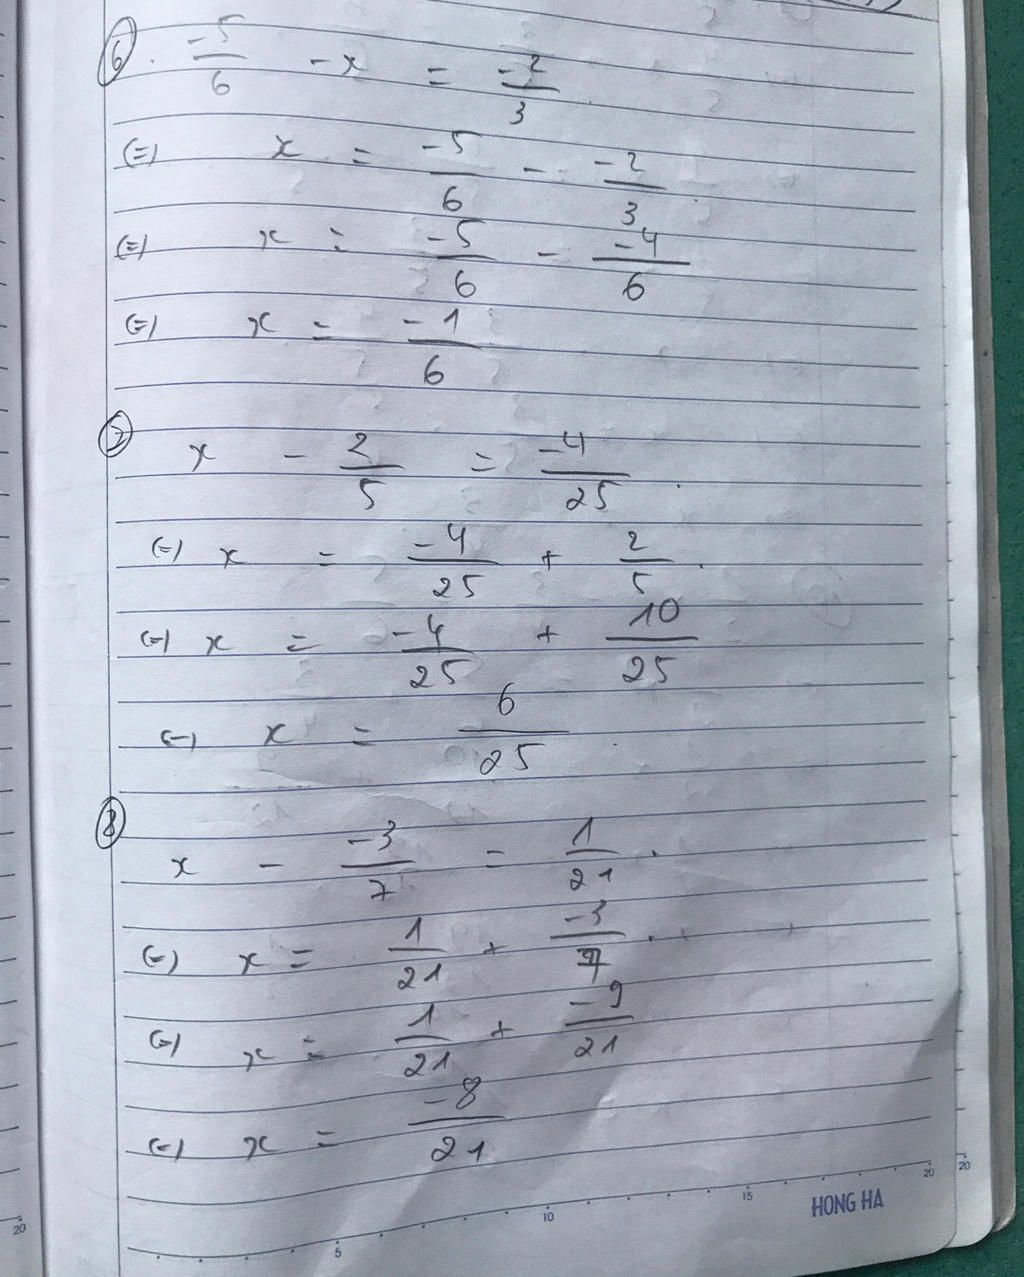 ⑥. -5/6 - x = -2/3
(=) x = -5/6 - -2/3
(=) x = -5/6 - -4/6
(=) x = -1/6
⑦
x - 2/5 = -4/25.
(=) x = -4/25 + 2/5.
(=) x = -4/25 + 10/25
(=) x = 6/25
⑧
x - -3/7 = 1/21.
(=) x = 1/21 + -3/7.
(=) x = 1/21 + -9/21
(=) x = -8/21
5 10 15 20 HONG HA
20
20